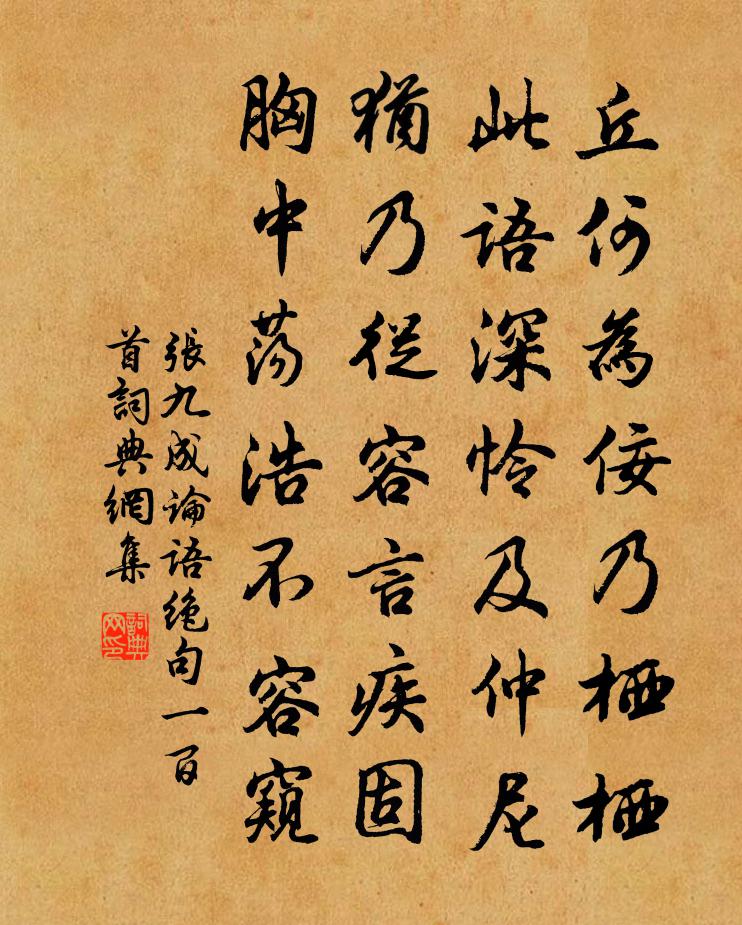 丘何為佞乃栖栖
此語深怜及仲尼
猶乃從容言疾固
胸中荡浩不容窺
張九成论语绝句一百
首詞典網集
詞典网印